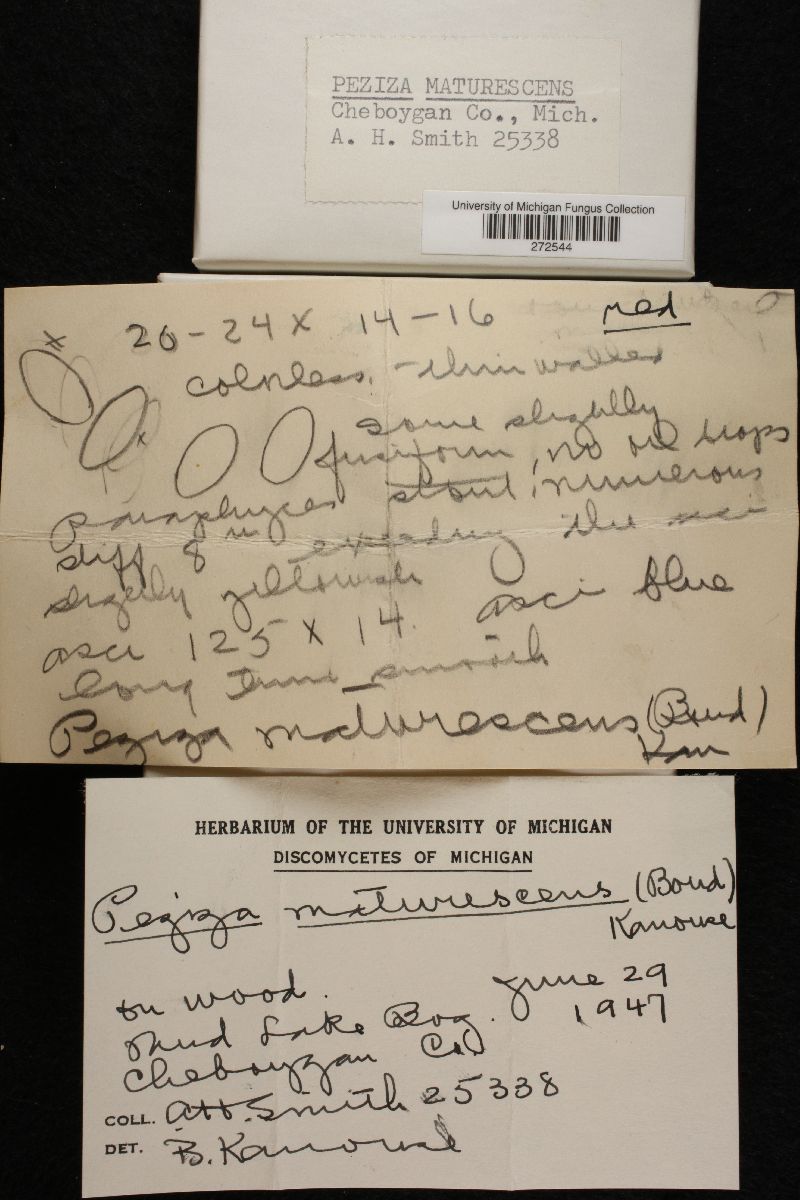 PEZIZA MATURESCENS
Cheboygan Co., Mich.
A. H. Smith 25338
University of Michigan Fungus Collection
272544
20-24 x 14-16
colorless, -thin walled
some slightly
fusiform, no oil drops
paraphyses stout, numerous
stiff 8 exceeding the asci
slightly yellowish
asci 125 x 14. asci blue
long smooth
Peziza maturescens (Boud)
Kan
HERBARIUM OF THE UNIVERSITY OF MICHIGAN
DISCOMYCETES OF MICHIGAN
Peziza maturescens (Boud)
Kanouse
on wood. June 29
Mud Lake Bog. 1947
Cheboygan Co.
COLL. AH. Smith 25338
DET. B. Kanouse